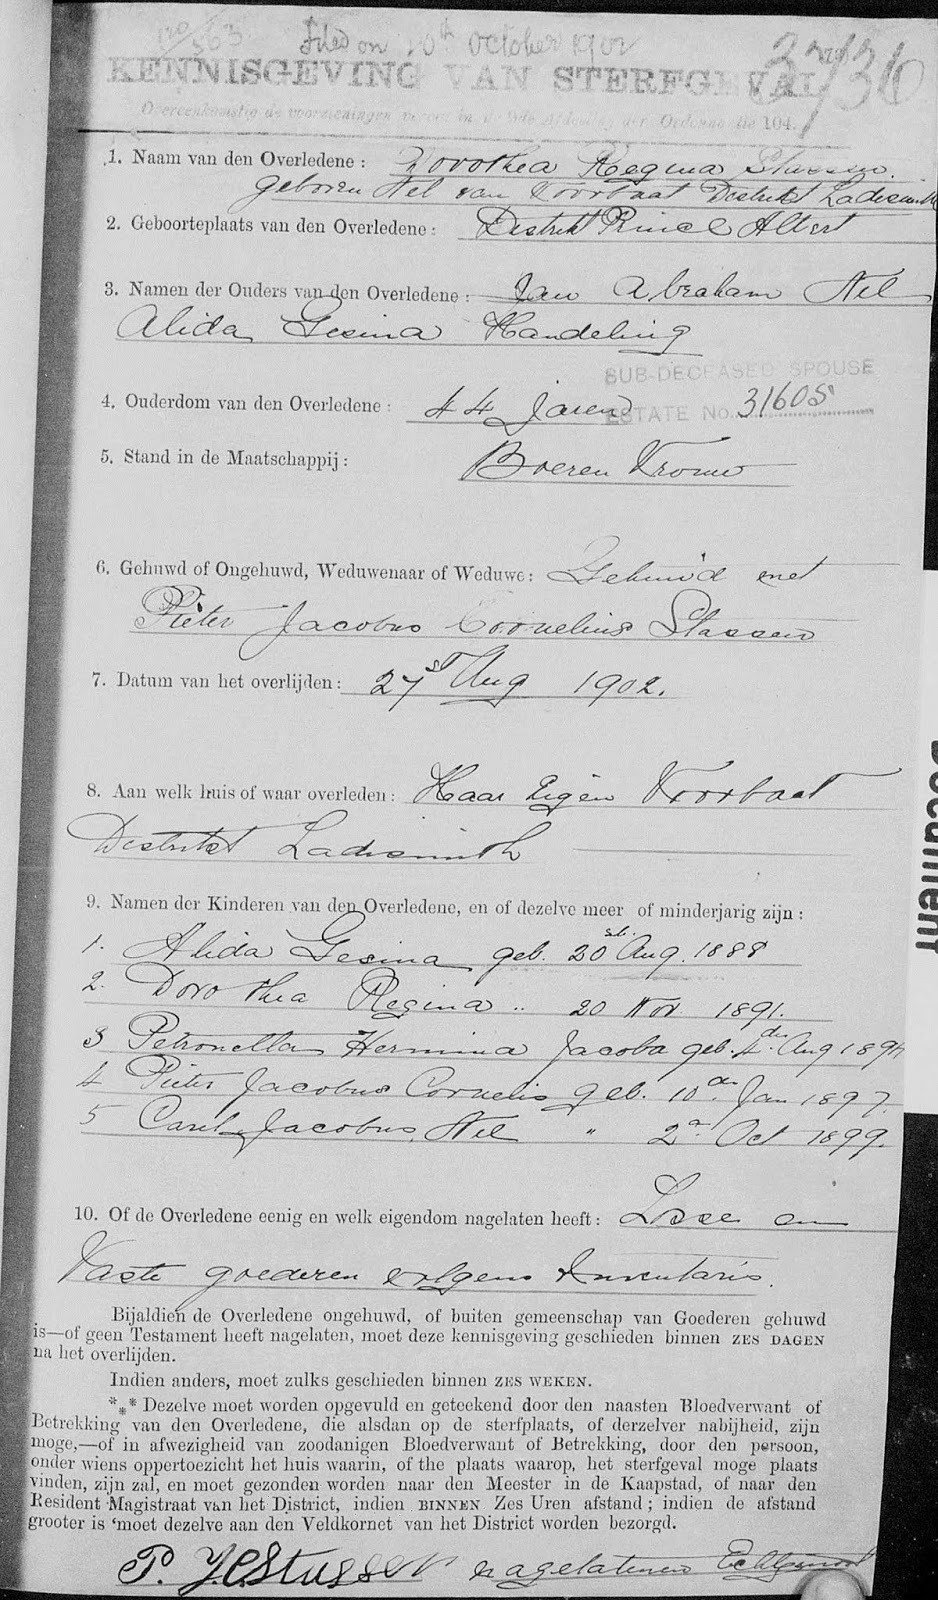 120/563 Filed on 10th October 1902 3736
KENNISGEVING VAN STERFGEVAL
Overeenkomstig de voorzieningen vervat in de Afdeeling der Ordonnantie 104.
1. Naam van den Overledene : Dorothea Regina Stassen.
geboren Nel van Voorbaat Destrikt Ladismith
2. Geboorteplaats van den Overledene : Destrikt Prince Albert
3. Namen der Ouders van den Overledene : Jan Abraham Nel
Alida Gesina Handeling
SUB-DECEASED SPOUSE
4. Ouderdom van den Overledene : 44 Jaren
ESTATE No. 31605
5. Stand in de Maatschappij : Boeren Vrouw
6. Gehuwd of Ongehuwd, Weduwenaar of Weduwe : Gehuwd met
Pieter Jacobus Cornelius Stassen
7. Datum van het overlijden : 27st Aug 1902.
8. Aan welk huis of waar overleden : Haar Eigen Voorbaat
Destrikt Ladismith
9. Namen der Kinderen van den Overledene, en of dezelve meer of minderjarig zijn :
1. Alida Gesina geb. 20st. Aug. 1888
2. Dorothea Regina „ 20 Nov 1891.
3 Petronella Hermina Jacoba geb. 4de Aug 1894
4 Pieter Jacobus Cornelis geb. 10de Jan 1897.
5 Carel Jacobus Nel „ 2de Oct 1899.
10. Of de Overledene eenig en welk eigendom nagelaten heeft : Losse en
Vaste goederen volgens Inventaris.
Bijaldien de Overledene ongehuwd, of buiten gemeenschap van Goederen gehuwd
is—of geen Testament heeft nagelaten, moet deze kennisgeving geschieden binnen ZES DAGEN
na het overlijden.
Indien anders, moet zulks geschieden binnen ZES WEKEN.
*** Dezelve moet worden opgevuld en geteekend door den naasten Bloedverwant of
Betrekking van den Overledene, die alsdan op de sterfplaats, of derzelver nabijheid, zijn
moge,—of in afwezigheid van zoodanigen Bloedverwant of Betrekking, door den persoon,
onder wiens oppertoezicht het huis waarin, of the plaats waarop, het sterfgeval moge plaats
vinden, zijn zal, en moet gezonden worden naar den Meester in de Kaapstad, of naar den
Resident Magistraat van het District, indien BINNEN Zes Uren afstand ; indien de afstand
grooter is 'moet dezelve aan den Veldkornet van het District worden bezorgd.
P. J. C Stassen nagelatenen Echtgenoot
Document